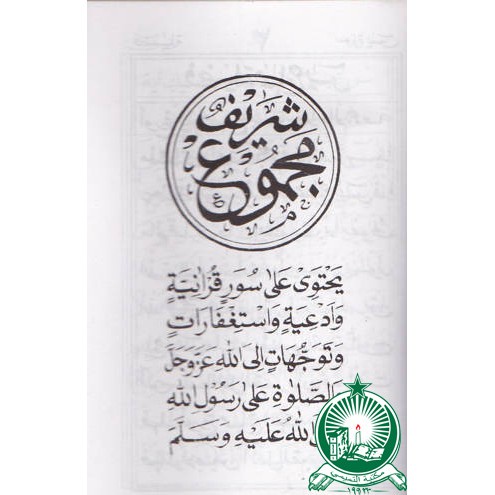 شريف
مجموع
يَحْتَوِىْ عَلىٰ سُوَرٍ قُرْاٰنِيَةٍ
وَاَدْعِيَةٍ وَاسْتِغْفَارَاتٍ
وَتَوَجُّهَاتٍ اِلَى اللهِ عَزَّ وَجَلَّ
الصَّلوٰةِ عَلىٰ رَسُوْلِ اللهِ
اللهُ عَلَيْهِ وَسَلَّمَ
مكتبة